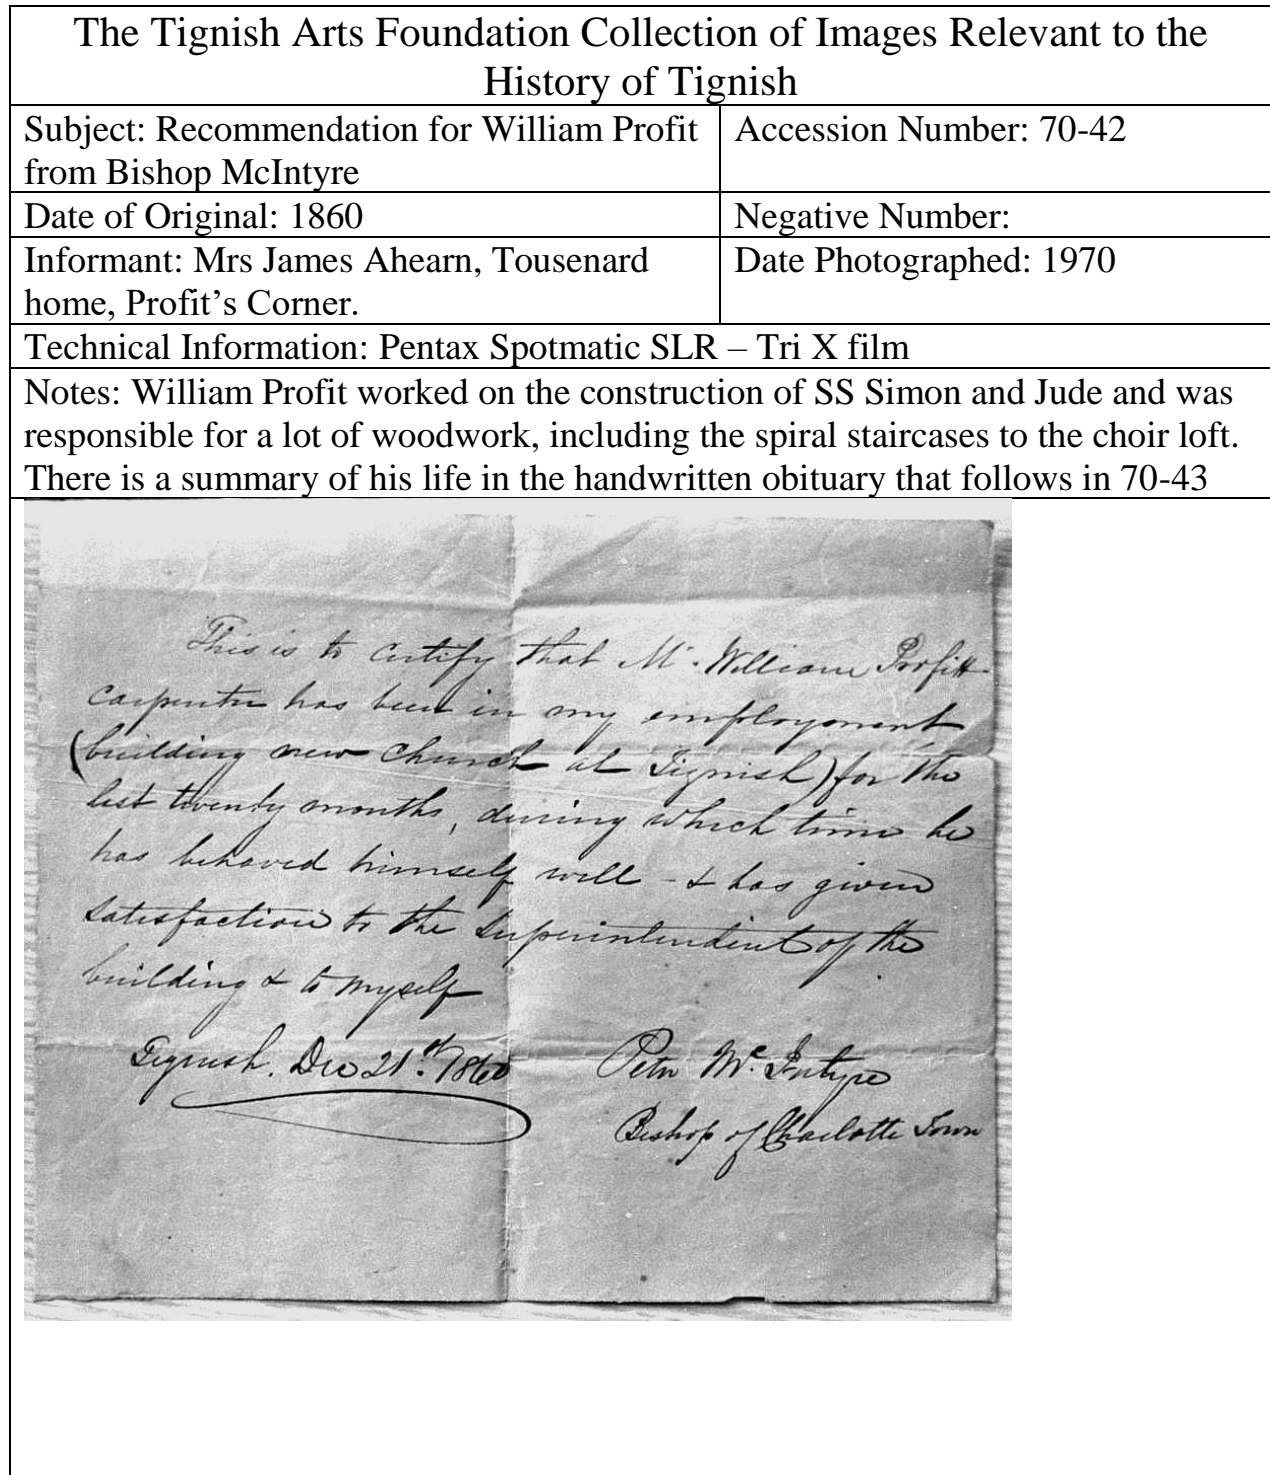 The Tignish Arts Foundation Collection of Images Relevant to the
History of Tignish
Subject: Recommendation for William Profit
from Bishop McIntyre
Accession Number: 70-42
Date of Original: 1860
Negative Number:
Informant: Mrs James Ahearn, Tousenard
home, Profit’s Corner.
Date Photographed: 1970
Technical Information: Pentax Spotmatic SLR – Tri X film
Notes: William Profit worked on the construction of SS Simon and Jude and was
responsible for a lot of woodwork, including the spiral staircases to the choir loft.
There is a summary of his life in the handwritten obituary that follows in 70-43
This is to certify that Mr. William Profitt
carpenter has been in my employment
(building new Church at Tignish) for the
last twenty months, during which time he
has behaved himself well - & has given
satisfaction to the Superintendent of the
building & to myself
Tignish. Dec 21st. 1860
Peter McIntyre
Bishop of Charlotte Town